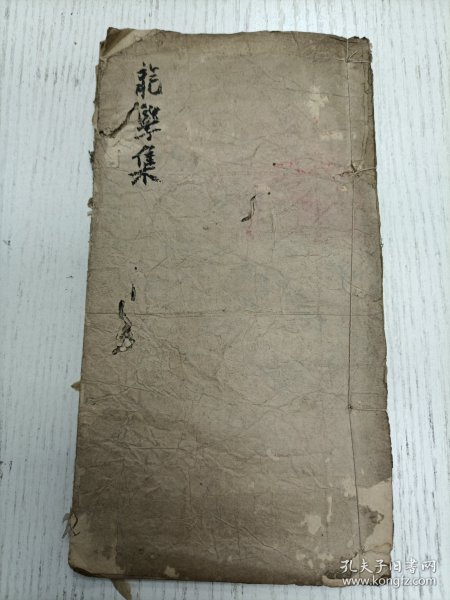 龍學集
孔夫子旧书网
www.kongfz.com